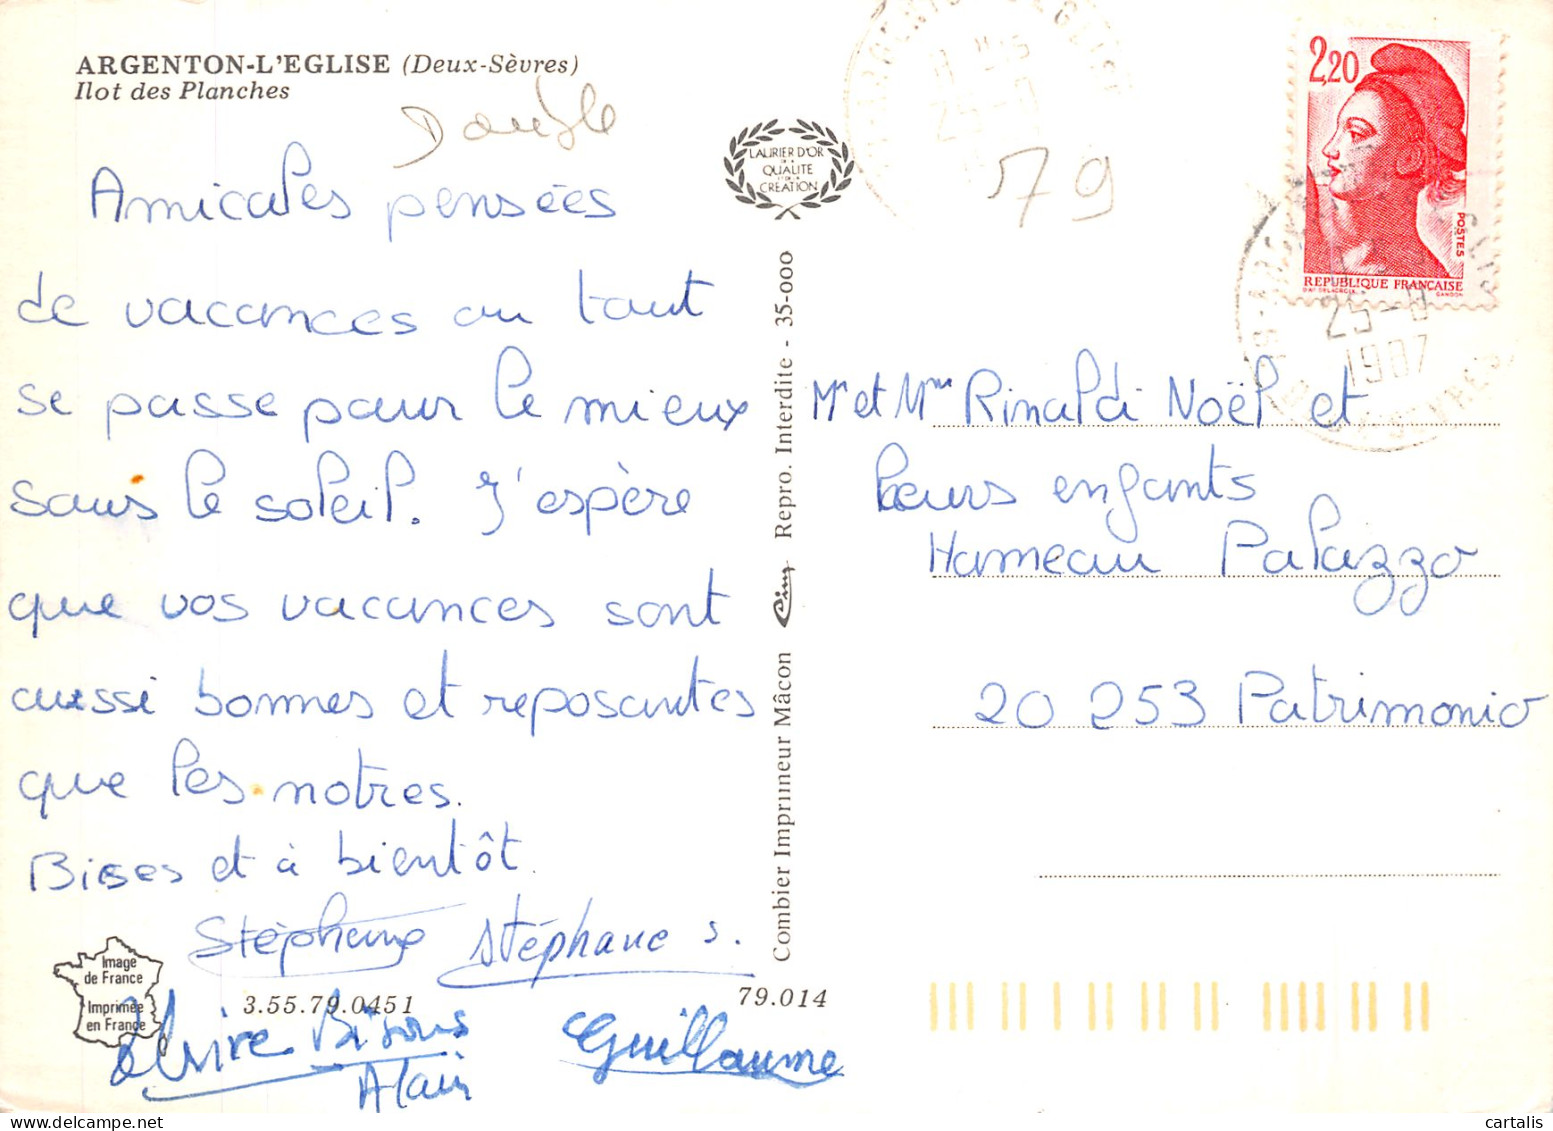 ARGENTON-L'EGLISE (Deux-Sèvres)
Ilot des Planches
Double
Amicales pensées
de vacances ou tout
se passe pour le mieux
sous le soleil. J'espère
que vos vacances sont
aussi bonnes et reposantes
que les notres.
Bises et à bientôt.
Stéphane s.
Image
de France
Imprimée
en France
3.55.79.0451
79.014
Bisous
Alain
Guillaume
LAURIER D'OR
DE LA
QUALITE
ET DE LA
CREATION
Combier Imprimeur Mâcon Cim Repro. Interdite - 35-000
79
2,20
POSTES
REPUBLIQUE FRANÇAISE
D'AP. DELACROIX GANDON
25-8
1987
Mr et Mme Rinaldi Noël et
leurs enfants
Hameau Palazzo
20 253 Patrimonio
cartalis